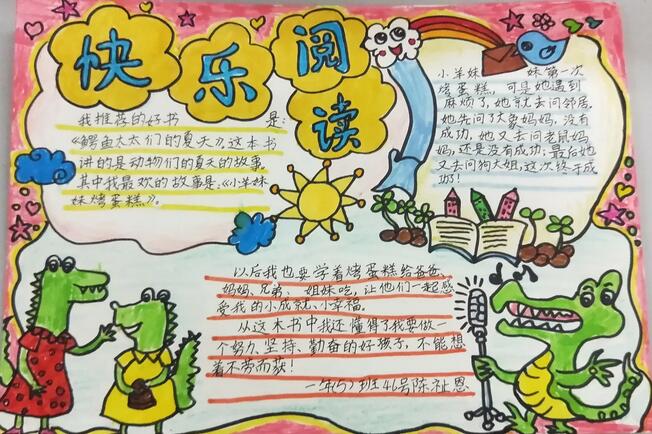 快乐阅读
我推荐的好书 是:
《鳄鱼太太们的夏天》,这本书
讲的是动物们的夏天的故事。
其中我最欢的故事是:《小羊妹
妹烤蛋糕》。
小羊妹 妹第一次
烤蛋糕,可是她遇到
麻烦了,她就去问邻居。
她先问了大象妈妈,没有
成功,她又去问老鼠妈
妈,还是没有成功,最后她
又去问狗大姐,这次终于成
功了!
以后我也要学着烤蛋糕给爸爸、
妈妈、兄弟、姐妹吃,让他们一起感
受我的小成就、小幸福。
从这本书中我还懂得了我要做一
个努力、坚持、勤奋的好孩子,不能想
着不劳而获!
一年(5)班46号陈祉恩